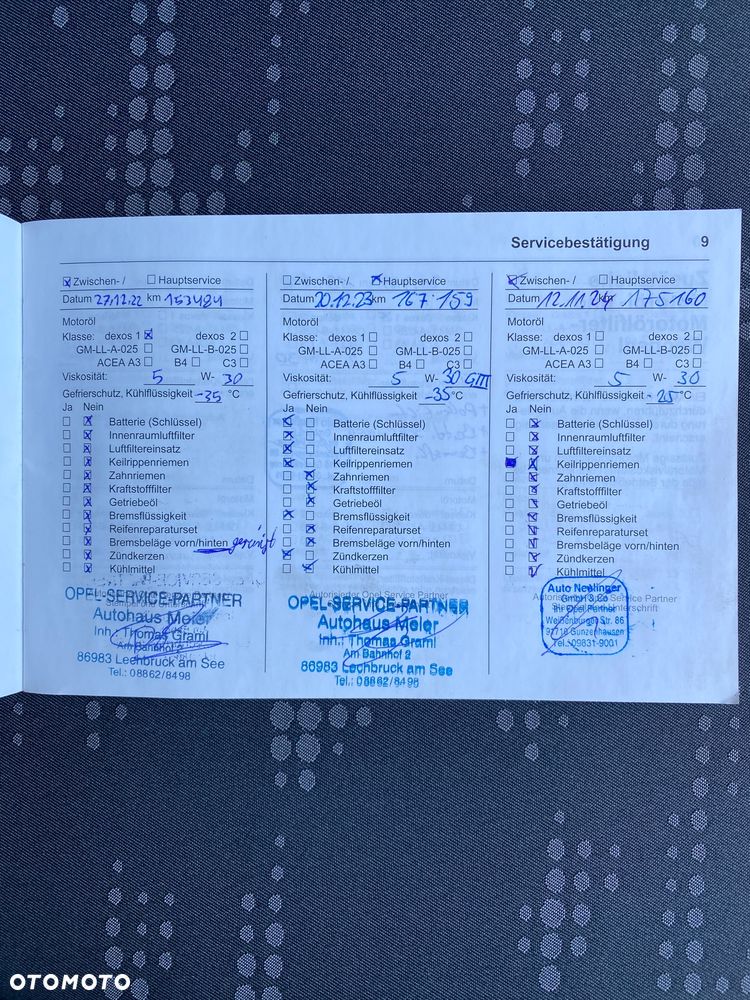 Servicebestätigung 9
Zwischen- / Hauptservice
Datum 27.12.22 km 153484
Motoröl
Klasse: dexos 1 dexos 2
GM-LL-A-025 GM-LL-B-025
ACEA A3 B4 C3
Viskosität: 5 W- 30
Gefrierschutz, Kühlflüssigkeit -35 °C
Ja Nein
Batterie (Schlüssel)
Innenraumluftfilter
Luftfiltereinsatz
Keilrippenriemen
Zahnriemen
Kraftstofffilter
Getriebeöl
Bremsflüssigkeit
Reifenreparaturset
Bremsbeläge vorn/hinten gereinigt
Zündkerzen
Kühlmittel
OPEL-SERVICE-PARTNER
Autohaus Meier
Inh.: Thomas Graml
Am Bahnhof 2
86983 Lechbruck am See
Tel.: 08862/8498
Zwischen- / Hauptservice
Datum 20.12.23 km 167.159
Motoröl
Klasse: dexos 1 dexos 2
GM-LL-A-025 GM-LL-B-025
ACEA A3 B4 C3
Viskosität: 5 W- 30 GIII
Gefrierschutz, Kühlflüssigkeit -35 °C
Ja Nein
Batterie (Schlüssel)
Innenraumluftfilter
Luftfiltereinsatz
Keilrippenriemen
Zahnriemen
Kraftstofffilter
Getriebeöl
Bremsflüssigkeit
Reifenreparaturset
Bremsbeläge vorn/hinten
Zündkerzen
Kühlmittel
Autorisierter Opel Service Partner
OPEL-SERVICE-PARTNER
Autohaus Meier
Inh.: Thomas Graml
Am Bahnhof 2
86983 Lechbruck am See
Tel.: 08862/8498
Zwischen- / Hauptservice
Datum 12.11.24 km 175160
Motoröl
Klasse: dexos 1 dexos 2
GM-LL-A-025 GM-LL-B-025
ACEA A3 B4 C3
Viskosität: 5 W- 30
Gefrierschutz, Kühlflüssigkeit -25 °C
Ja Nein
Batterie (Schlüssel)
Innenraumluftfilter
Luftfiltereinsatz
Keilrippenriemen
Zahnriemen
Kraftstofffilter
Getriebeöl
Bremsflüssigkeit
Reifenreparaturset
Bremsbeläge vorn/hinten
Zündkerzen
Kühlmittel
Autorisierter Opel Service Partner
Auto Neulinger
GmbH & Co
Ihr Opel Partner
Weißenburger Str. 86
91710 Gunzenhausen
Tel. 09831-9001
OTOMOTO